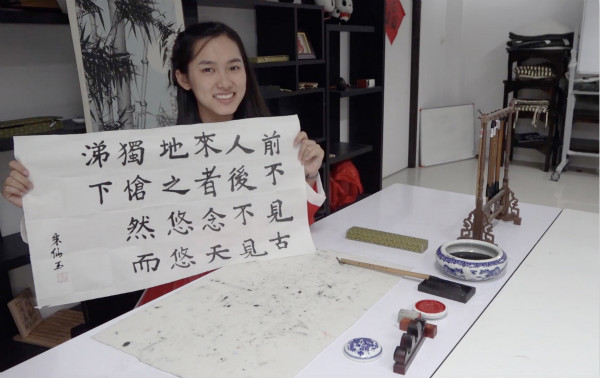 前不見古
人後不見
來者念天
地之悠悠
獨愴然而
涕下